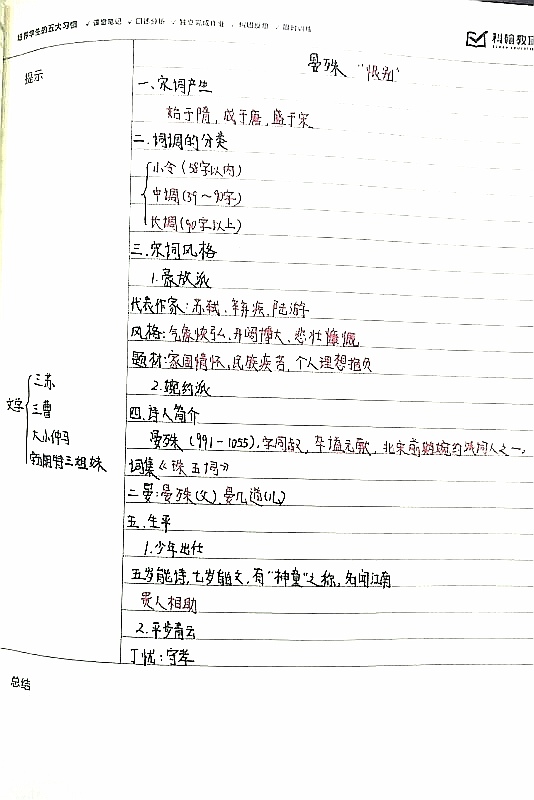 培养学生的五大习惯 ✓课堂笔记 ✓口述分析 ✓独立完成作业 ✓错题反思 ✓限时训练
科翰教育
提示
晏殊 "恨别"
一、宋词产生
始于隋,成于唐,盛于宋
二、词调的分类
小令(58字以内)
中调(59~90字)
长调(90字以上)
三、宋词风格
1.豪放派
代表作家:苏轼、辛弃疾、陆游
风格:气象恢弘、开阔博大、悲壮慷慨
题材:家国情怀,民族疾苦,个人理想抱负
2.婉约派
四、诗人简介
晏殊(991-1055),字同叔,北宋前期婉约派词人之一,
词集《珠玉词》
二晏:晏殊(父)、晏几道(儿)
五、生平
1.少年出仕
五岁能诗,七岁能文,有"神童"之称,名闻江南
贵人相助
2.平步青云
丁忧:守孝
文学
三苏
三曹
大小仲马
勃朗特三姐妹
总结